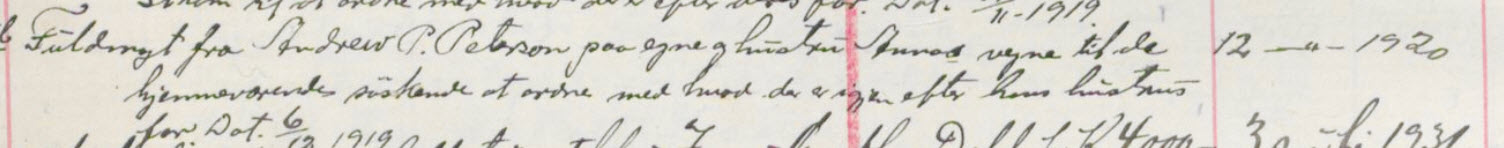 ordne med hvad der er efter for. Dat. /11-1919.
6 Fuldmagt fra Andrew P. Peterson paa egne og hustru Annas vegne til de 12 —"— 1920
hjemmeværende söskende at ordne med hvad der er igjen efter hans hustrus
far. Dat. 6/12 1919
K 4000 3 1931